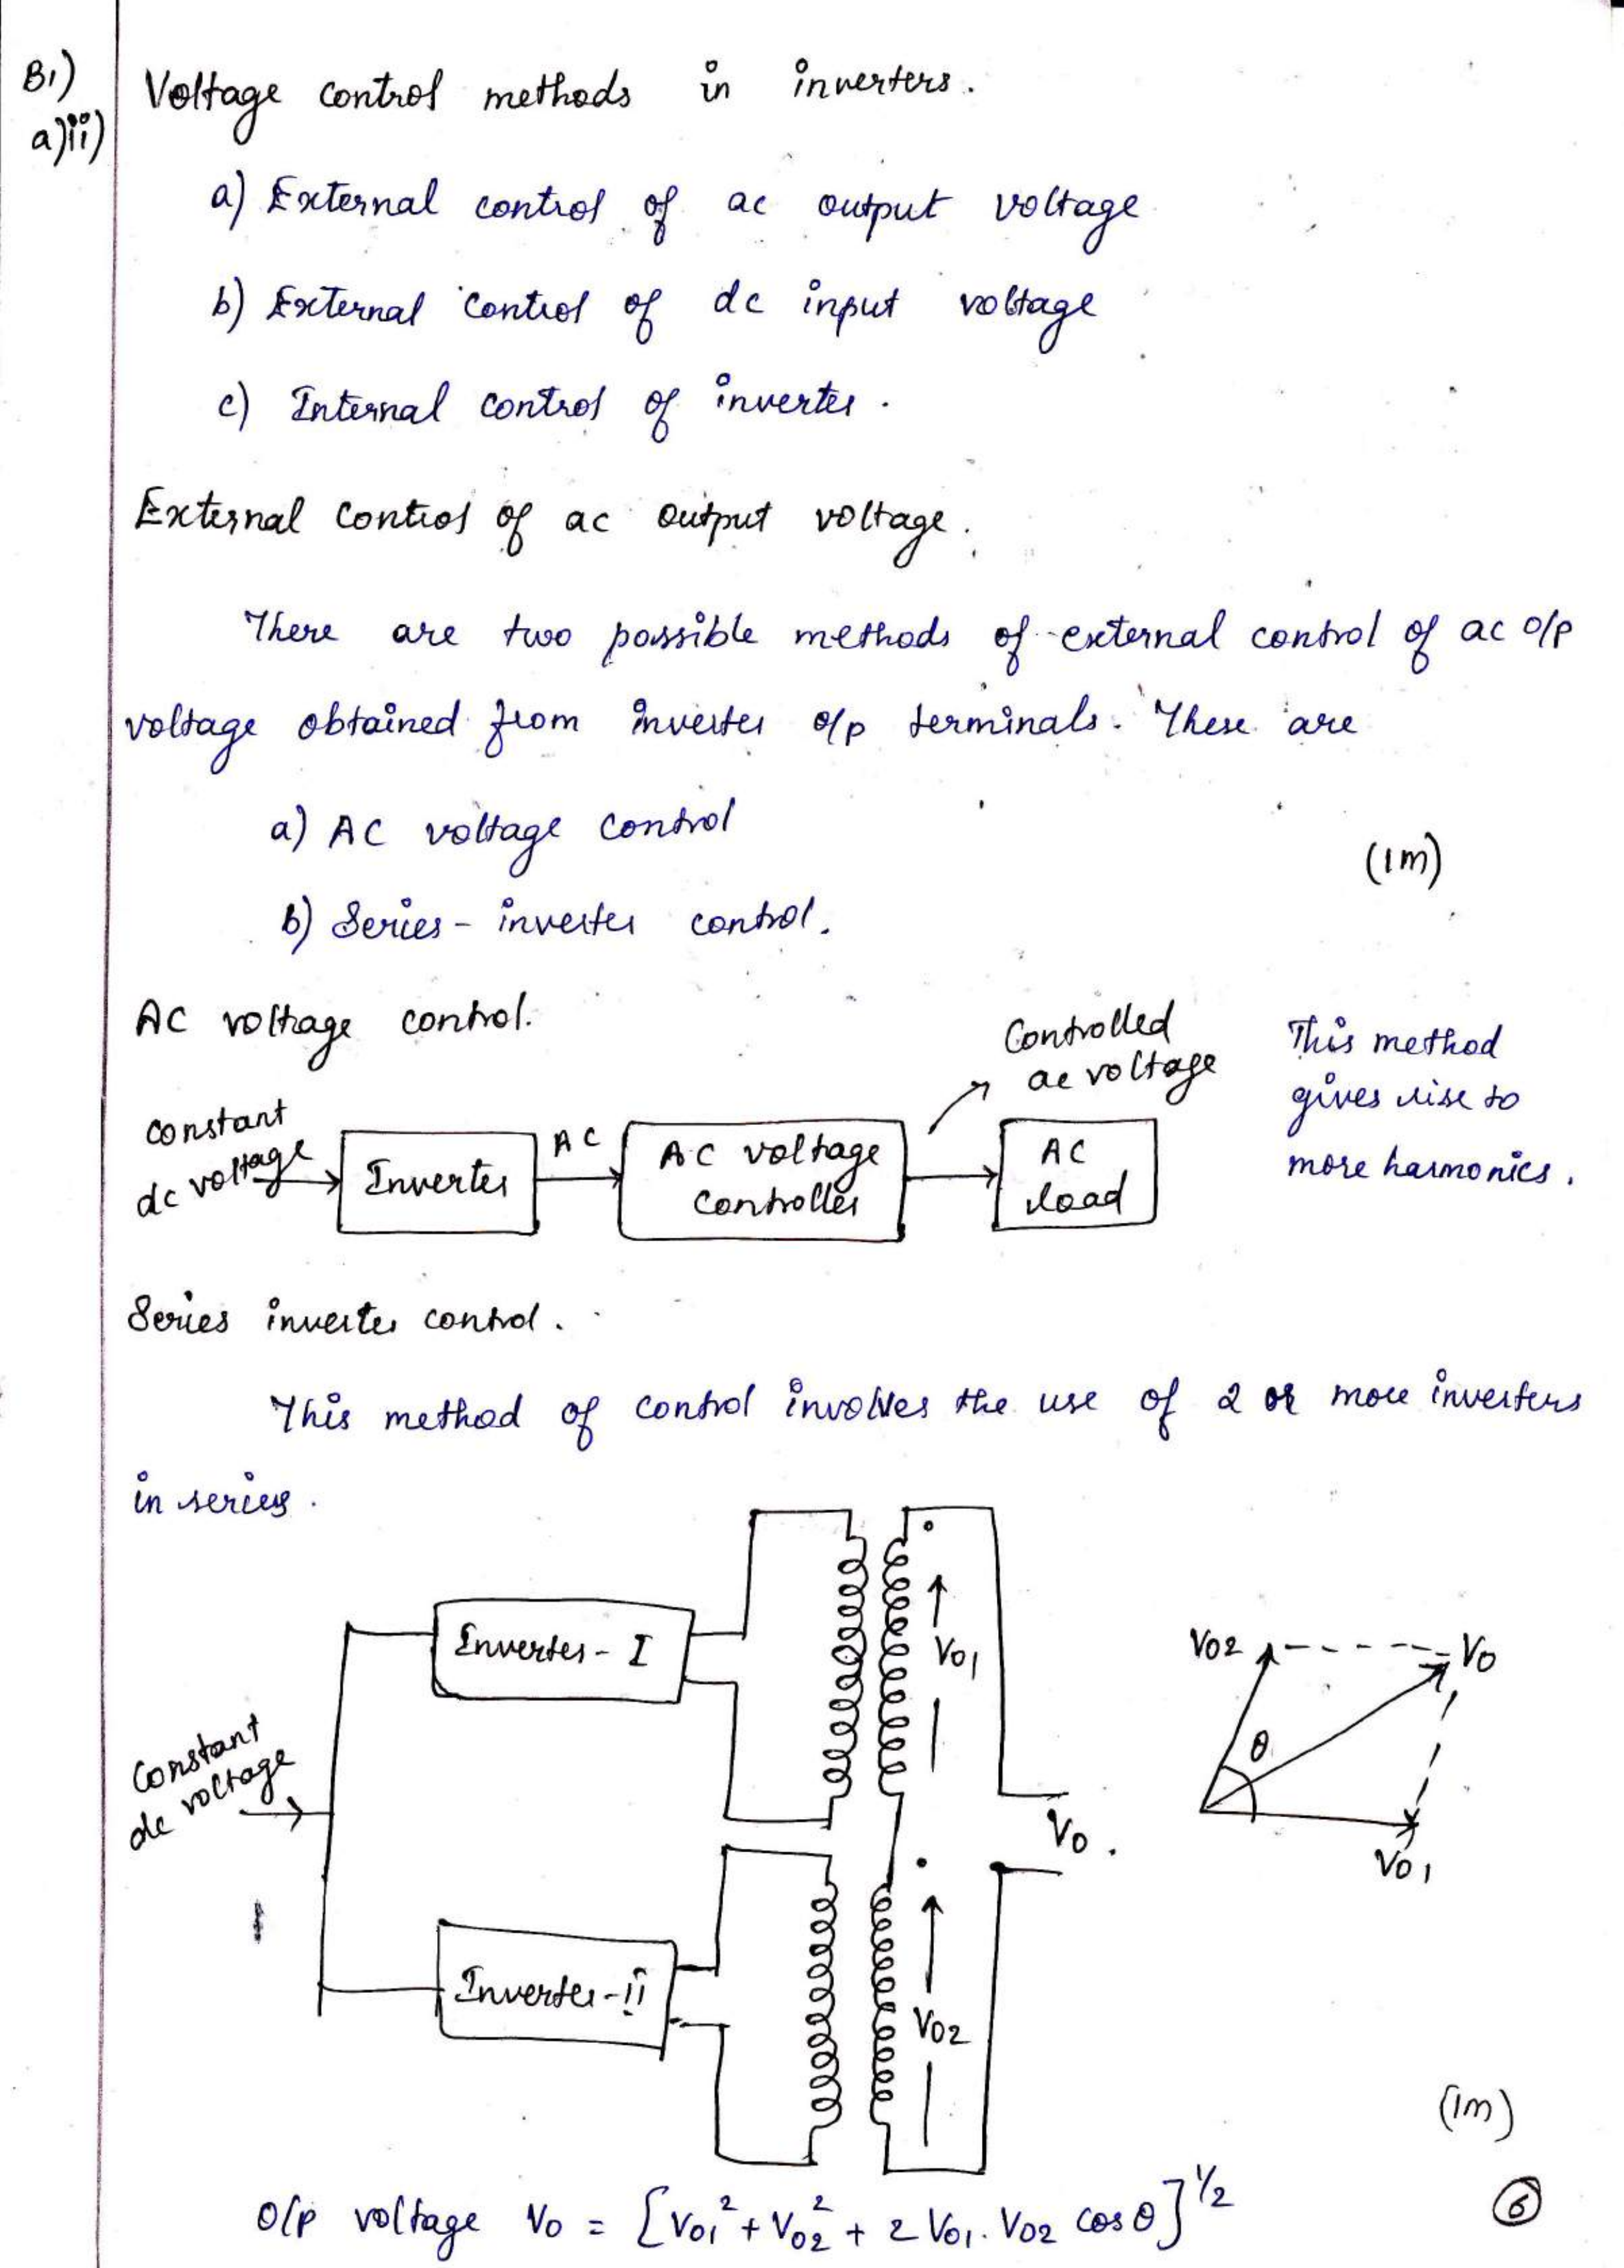 B1)
a)ii)
Voltage control methods in inverters.
a) External control of ac output voltage
b) External control of dc input voltage
c) Internal control of inverter.
External control of ac output voltage.
There are two possible methods of external control of ac o/p
voltage obtained from inverter o/p terminals. These are
a) AC voltage control
(1m)
b) Series - inverter control.
AC voltage control.
Constant
dc voltage
Inverter
AC
AC voltage
Controller
Controlled
ac voltage
AC
load
This method
gives rise to
more harmonics.
Series inverter control.
This method of control involves the use of 2 or more inverters
in series.
Constant
dc voltage
Inverter - I
V01
V0.
Inverter - ii
V02
V02
V0
θ
V01
(1m)
O/p voltage V0 = [V01² + V02² + 2 V01. V02 cos θ]^1/2
6